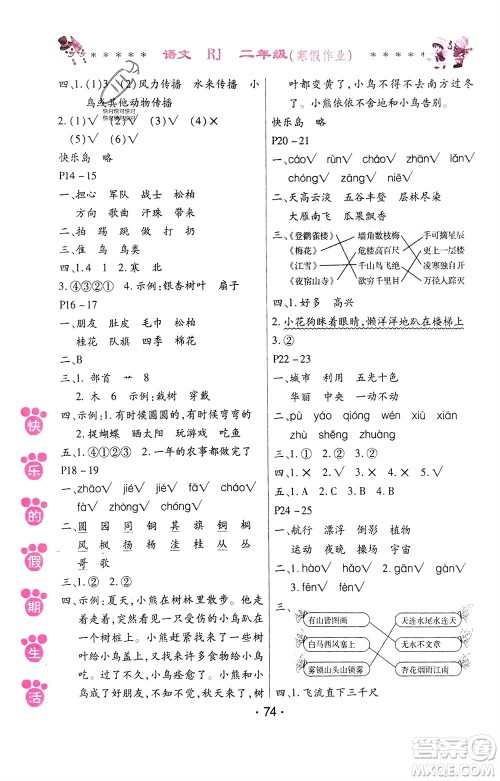 语文 RJ 二年级(寒假作业)
四、(1)3 (2)风力传播 水来传播 小
鸟或其他动物传播
2.(1)√ (2)√ (3)√ (4)×
(5)√ (6)√
快乐岛 略
P14-15
一、担心 军队 战士 松柏
方向 歌曲 汗珠 带来
二、拍 踢 跳 做 打 扔
三、隹 鸟 鸟类
四、1.4 1 2.寒 北
3.④③②① 4.示例:银杏树叶 扇子
P16-17
一、朋友 肚皮 毛巾 杉松
桂花 队旗 一丈 化石
二、B
三、1.部首 亠 8
2.木 6 示例:栽树 穿戴
四、示例:1.有时候圆圆的,有时候弯弯的
2.捉蝴蝶 晒太阳 玩游戏 吃鱼
五、1.④①②③ 2.一年的农事都做完了
P18-19
一、zhāo√ jié√ jié√
fà√ zhòng√ chǎng√
二、圆 园 同 铜 其 旗
风 枫 扬 杨 直 植
三、1.② 2.②
四、示例:夏天,小熊在树林里散步。他走
着走着,突然发现一只小鸟在草地上
哭,小鸟受伤了。小熊给小鸟在一棵
树上做了一个窝,小熊还用一些树枝树
叶给小鸟盖上,这样下雨的时候小鸟
就不会被淋湿。小熊给小鸟找来许许
多多的食物给小鸟吃。过了几天,小鸟
的伤好了许多。后来,秋天来了,一些树
叶都变黄了,小鸟也要到南方过冬了。
小熊依依不舍地和小鸟告别。
快乐岛 略
P20-21
一、cáo√ rùn√ cháo√ lǎn√
chóng√ zāng√ niē√
二、天高云淡 五谷丰登 层林尽染
大雁南飞 瓜果飘香
三、《登鹳雀楼》 墙角数枝梅 手可摘星辰
《梅花》 危楼高百尺 更上一层楼
《江雪》 千山鸟飞绝 凌寒独自开
《夜宿山寺》 欲穷千里目 万径人踪灭
四、1.好多 高兴
2.小花狗眯着眼睛,懒洋洋地趴在楼梯上
3.②
P22-23
一、城市 利用 五光十色
华丽 中央 一动不动
二、pù yáo qióng wèi xiù xiàn
zhēn xuē shēn qí chuán zhǐ
三、1.① 2.② 3.① 4.②
四、× √ × √
五、1.5 2.①③
P24-25
一、航行 漂浮 倒影 植物
运动 动人 无边无际
二、1.hào√ háo√ 2.hǎo√
3.fēn√ fèn√
三、
有山皆图画 天连水尾水连天
白马西风塞上 无水不文章
雾锁山头山锁雾 杏花烟雨江南
四、1.飞流直下三千尺
快
乐
的
假
期
生
活
·74·